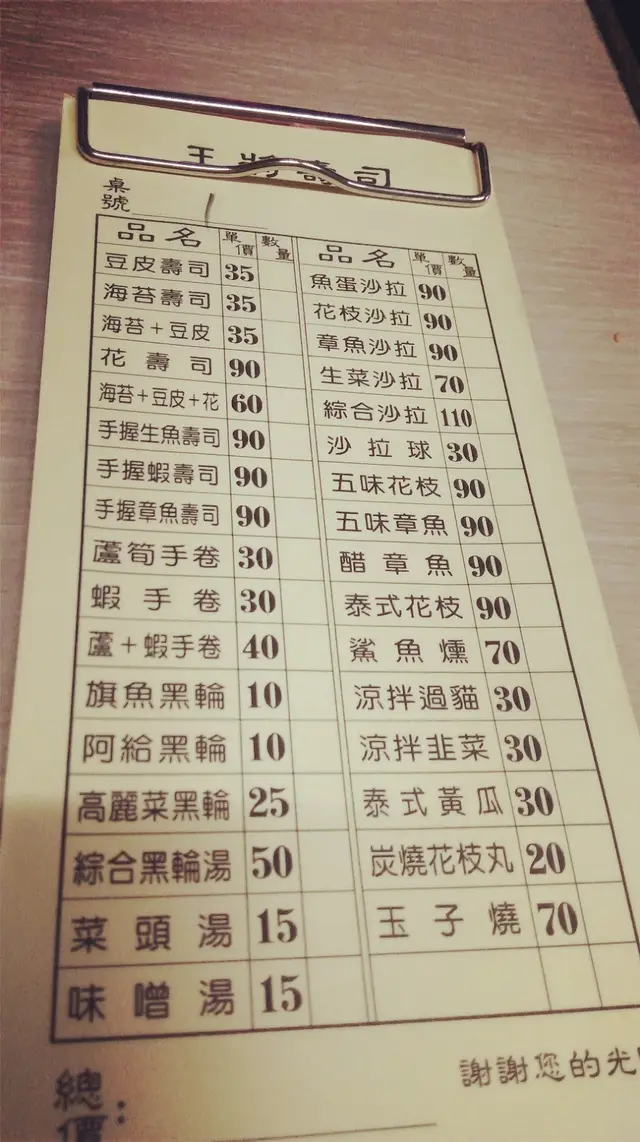 王將壽司
桌號
品名 單價 數量
豆皮壽司 35
海苔壽司 35
海苔+豆皮 35
花壽司 90
海苔+豆皮+花 60
手握生魚壽司 90
手握蝦壽司 90
手握章魚壽司 90
蘆筍手卷 30
蝦手卷 30
蘆+蝦手卷 40
旗魚黑輪 10
阿給黑輪 10
高麗菜黑輪 25
綜合黑輪湯 50
菜頭湯 15
味噌湯 15
品名 單價 數量
魚蛋沙拉 90
花枝沙拉 90
章魚沙拉 90
生菜沙拉 70
綜合沙拉 110
沙拉球 30
五味花枝 90
五味章魚 90
醋章魚 90
泰式花枝 90
鯊魚燻 70
涼拌過貓 30
涼拌韭菜 30
泰式黃瓜 30
炭燒花枝丸 20
玉子燒 70
謝謝您的光
總價: